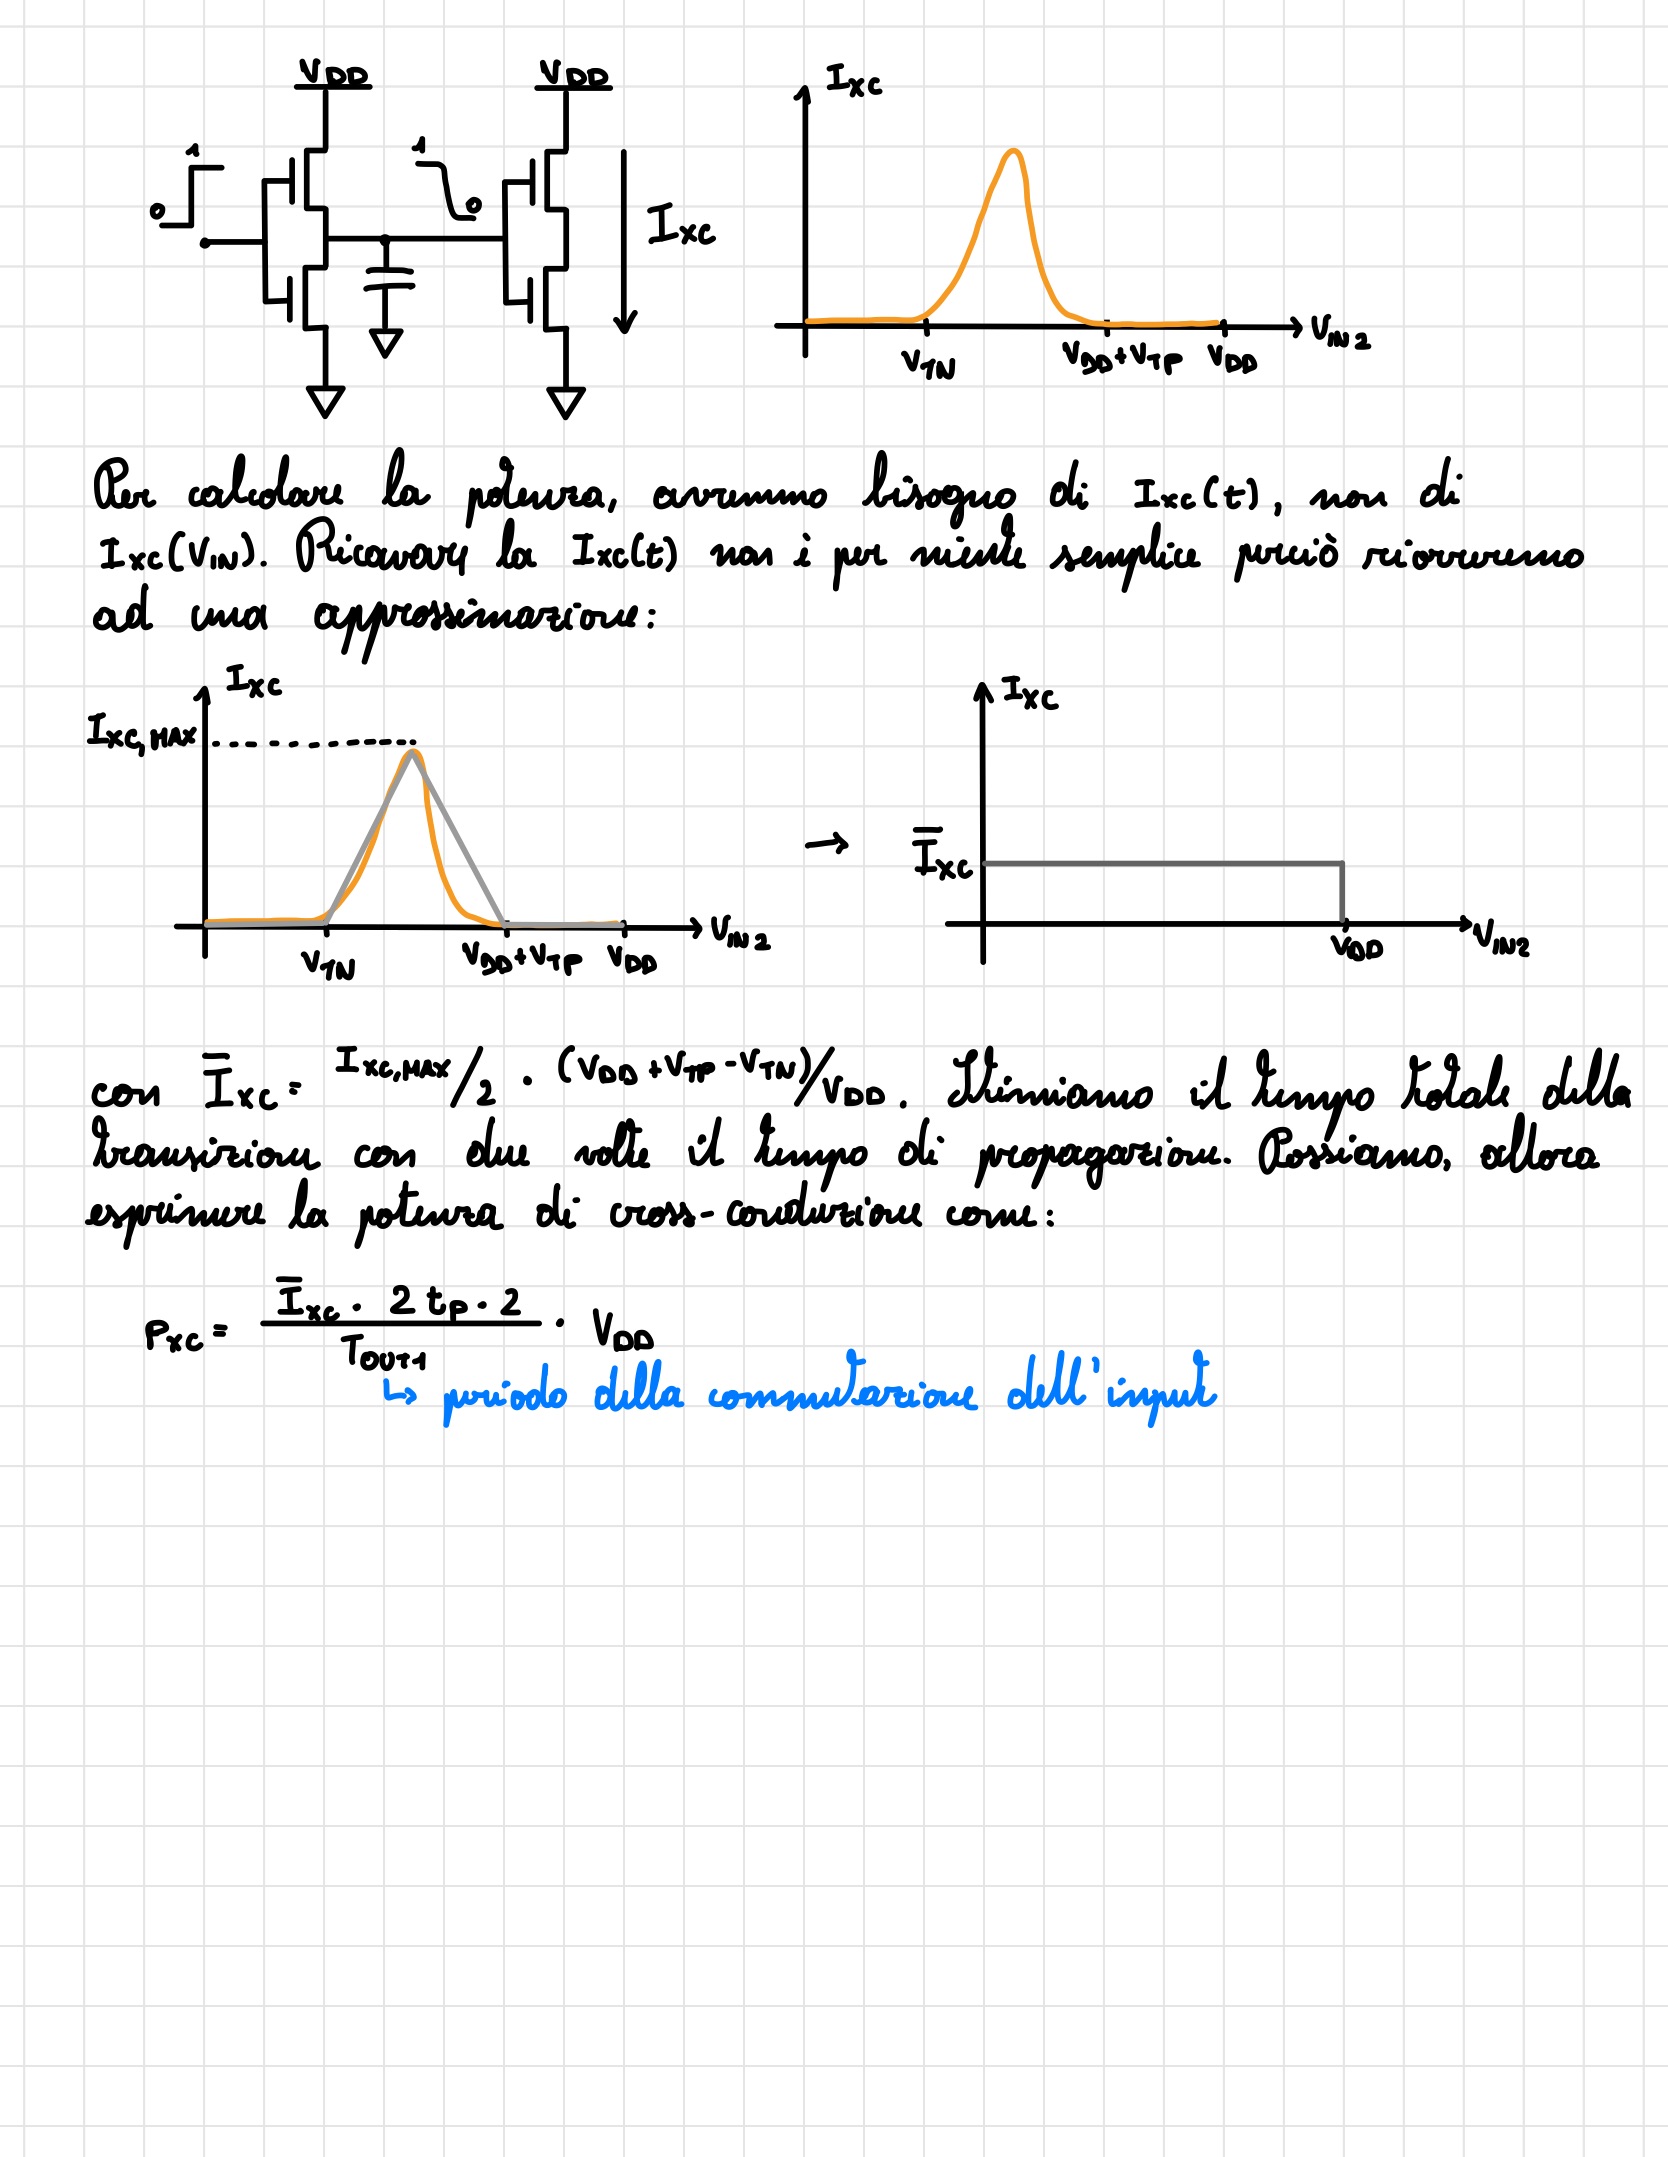 V_DD V_DD I_XC
1 1
0 0 I_XC
V_TN V_DD+V_TP V_DD V_IN2
Per calcolare la potenza, avremmo bisogno di I_XC(t), non di
I_XC(V_IN). Ricavare la I_XC(t) non è per niente semplice perciò ricorreremo
ad una approssimazione:
I_XC I_XC
I_XC,MAX
→ Ī_XC
V_TN V_DD+V_TP V_DD V_IN2 V_DD V_IN2
con Ī_XC = I_XC,MAX/2 · (V_DD+V_TP-V_TN)/V_DD. Stimiamo il tempo totale della
transizione con due volte il tempo di propagazione. Possiamo, allora
esprimere la potenza di cross-conduzione come:
P_XC = Ī_XC · 2 t_p · 2 / T_OUT1 · V_DD
↳ periodo della commutazione dell'input